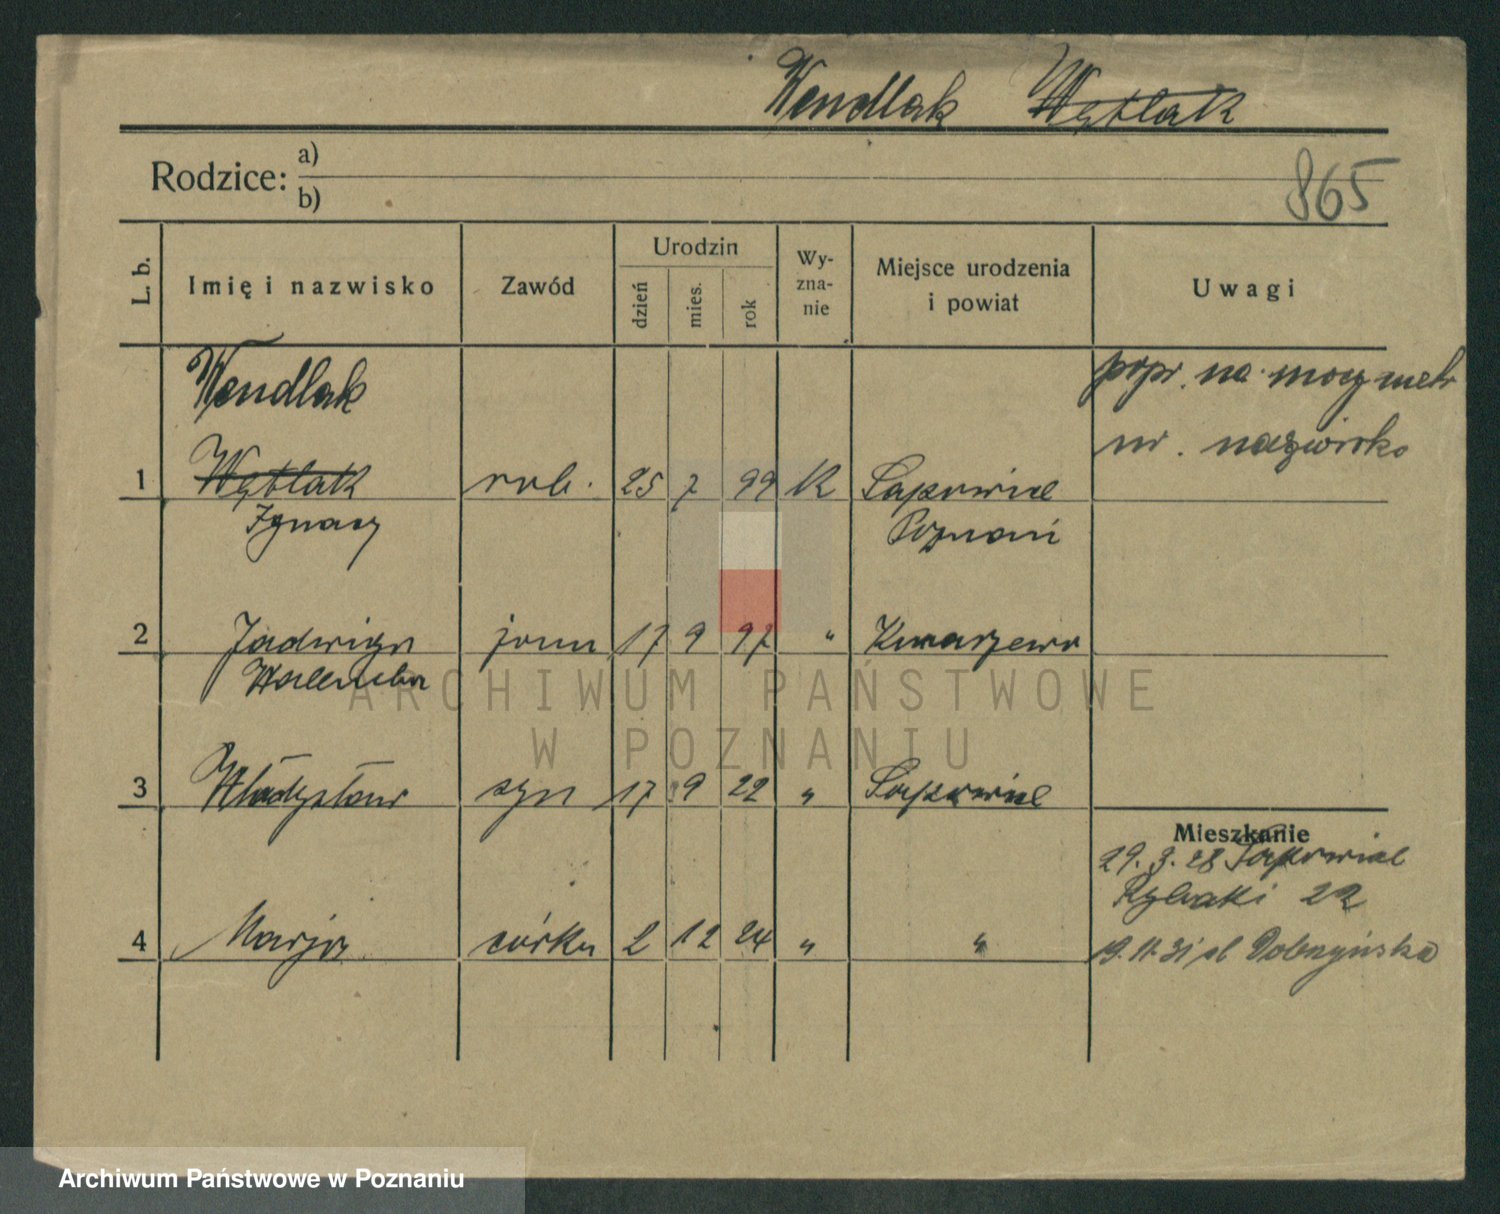 Wendlak Wętlak
Rodzice: a)
b)
865
L. b.
Imię i nazwisko
Zawód
Urodzin
dzień
mies.
rok
Wy-
zna-
nie
Miejsce urodzenia
i powiat
Uwagi
Wendlak
popr. na mocy metr
ur. nazwisko
1 Wętlak rob. 25 7 99 K Sapowice
Ignacy Poznań
2 Jadwiga 17 9 97 "
3 Władysław syn 17 9 22 " Sapowice
Mieszkanie
29. 3. 28 Sapowice
Rybaki 22
4 Marja córka 2 12 24 " "
19. 11. 31 Dobrzyńska
ARCHIWUM PAŃSTWOWE
W POZNANIU
Archiwum Państwowe w Poznaniu